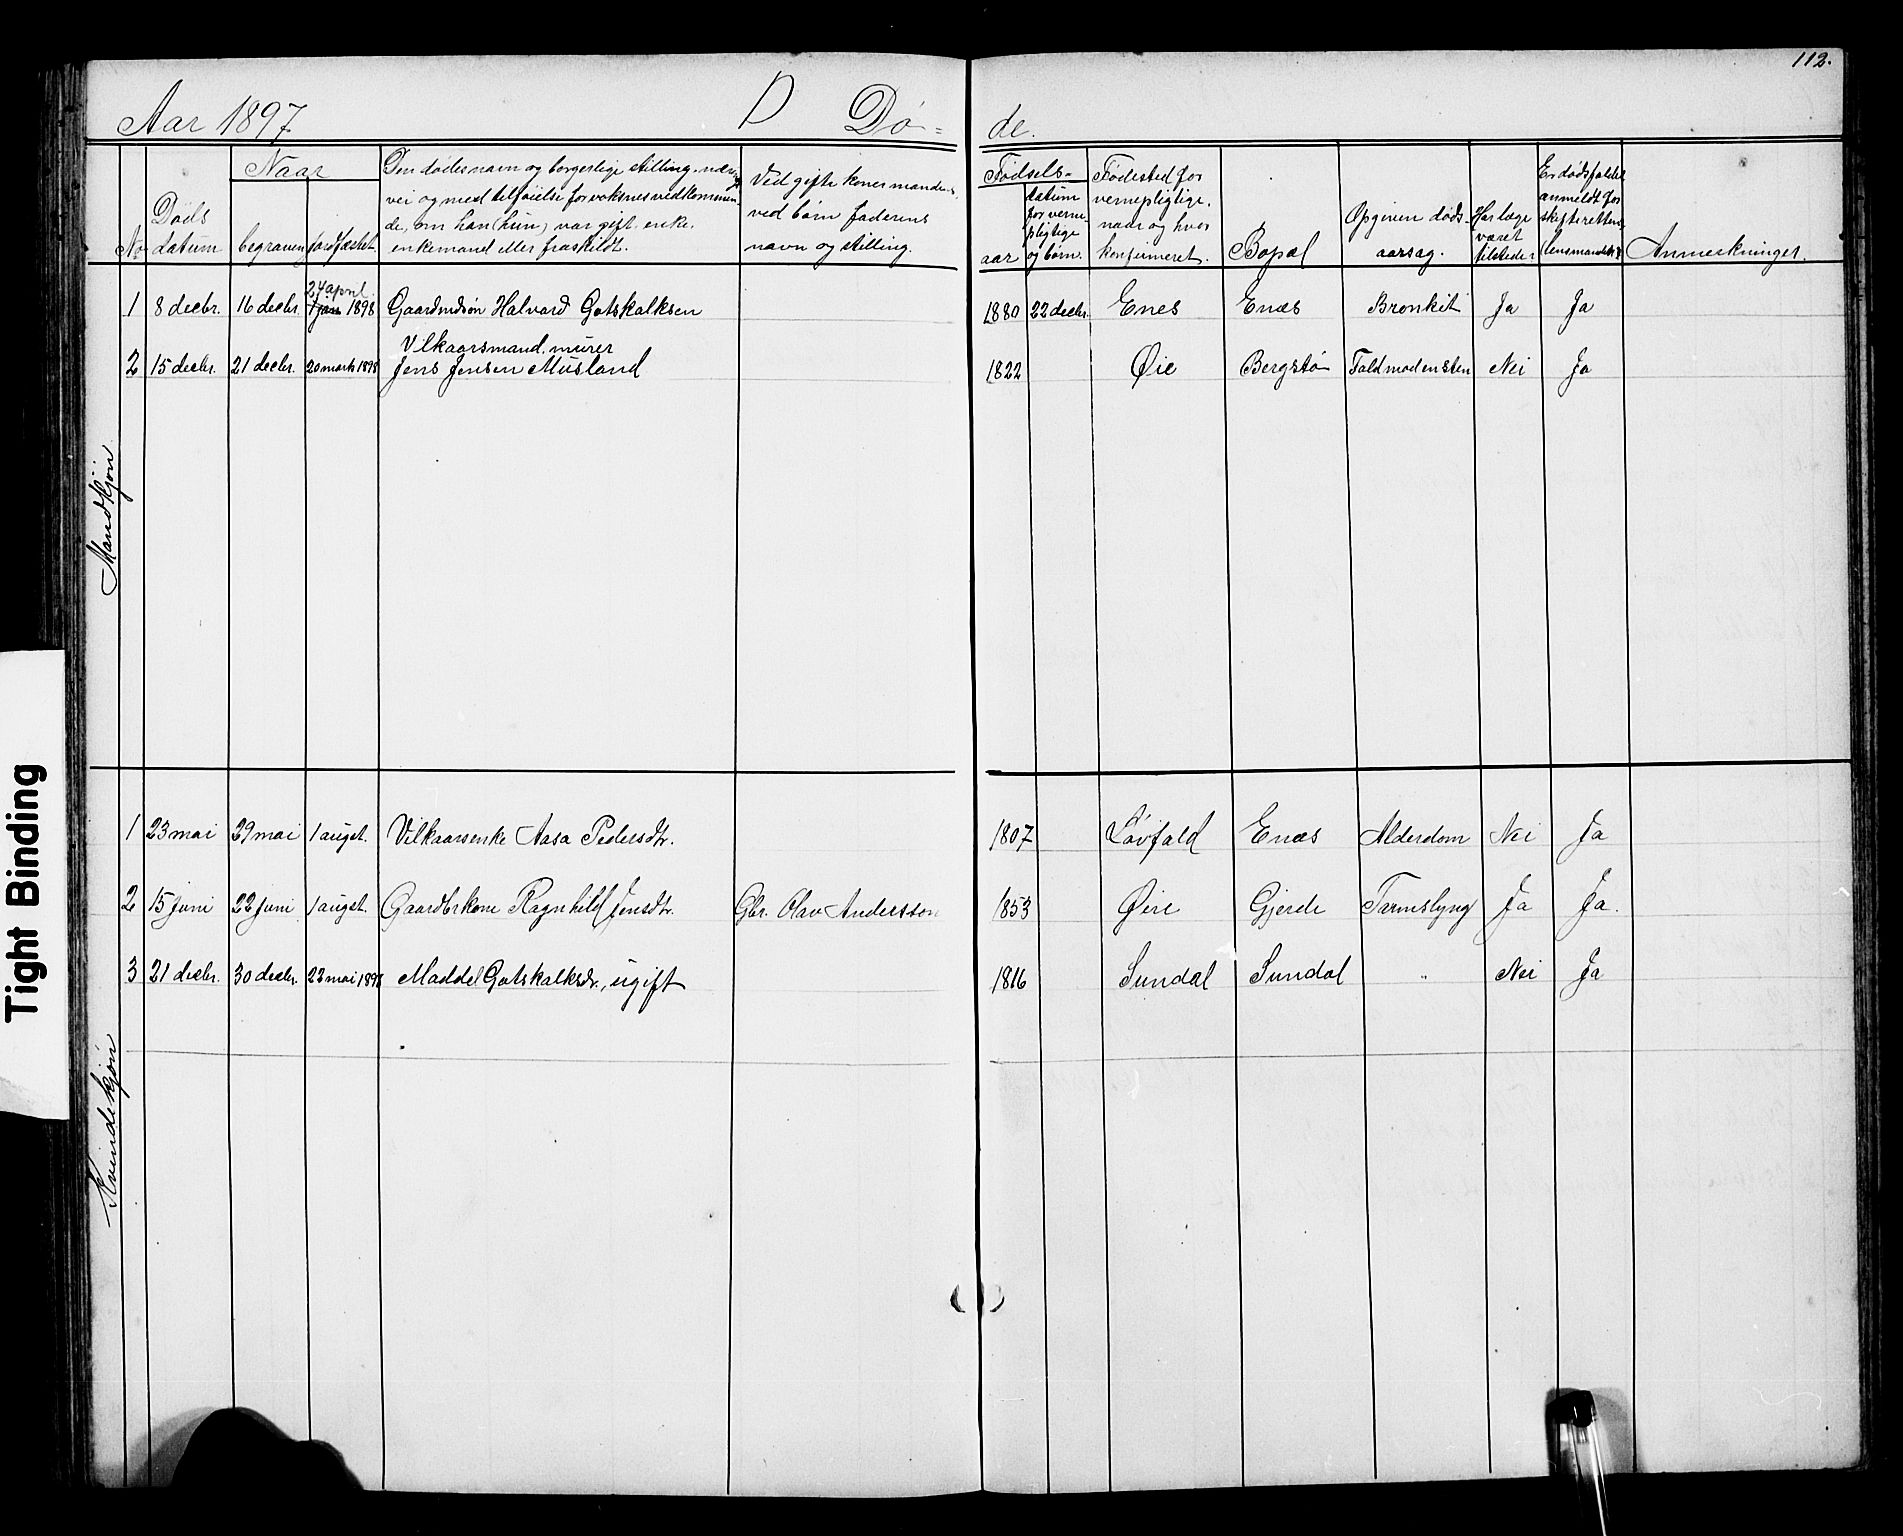 112.
Aar 1897 D Dø= de.
No
Døds datum
Naar
begraven
jordfæstet
Den dødes navn og borgerlige stilling, nærings
vei og med tilføielse for voksnes vedkommen
de, om han (hun) var gift, enke,
enkemand eller fraskildt.
Ved gifte koner mandens,
ved børn faderens
navn og stilling.
Fødsels-
aar
datum
for verne
pligtige
og børn.
Fødested for
vernepligtige,
naar og hvor
konfirmeret.
Bopæl
Opgiven døds-
aarsag.
Har læge
været
tilstede?
Er dødsfaldet
anmeldt for
skifteretten
(lensmanden)?
Anmerkninger.
Mandkjøn
24 april
1 8 decbr. 16 decbr. 1 jan 1898 Gaardmdsøn Halvard Gotskalksen 1880 22 decbr. Enes Enæs Bronkit Ja Ja
Vilkaarsmand, murer
2 15 decbr. 21 decbr. 20 marts 1898 Jens Jensen Musland 1822 Øie Bergstø Fald mod en sten Nei Ja
Kvindekjøn
1 23 mai 29 mai 1 augst. Vilkaarsenke Aasa Pedersdtr. 1807 Løvfald Enæs Alderdom Nei Ja
2 15 juni 22 juni 1 augst. Gaardbrkone Ragnhild Jensdtr. Gbr. Olav Andersson 1853 Øire Gjerde Tarmslyng Ja Ja.
3 21 decbr. 30 decbr. 22 mai 1898 Maddel Gotskalksdr., ugift 1816 Sundal Sundal " Nei Ja
Tight Binding